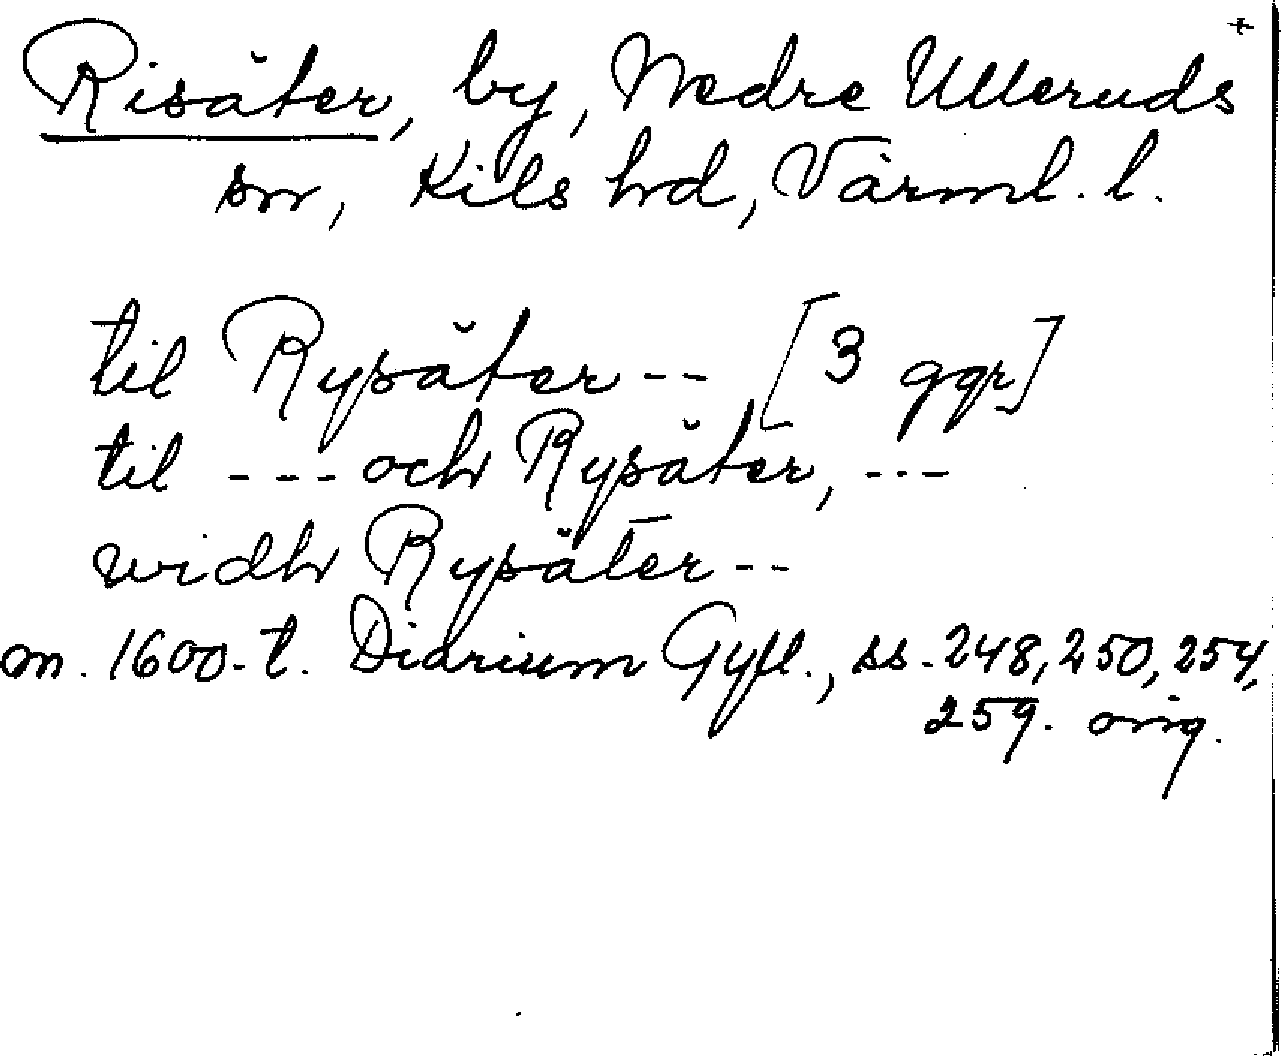 +
Risäter, by, Nedre Ulleruds
sn, Kils hd, Värml. l.
til Rysäter -- [3 ggr]
til --- och Rysäter, ---
widh Rysäter --
m. 1600-t. Diarium Gyll., ss. 248, 250, 254,
259. orig.